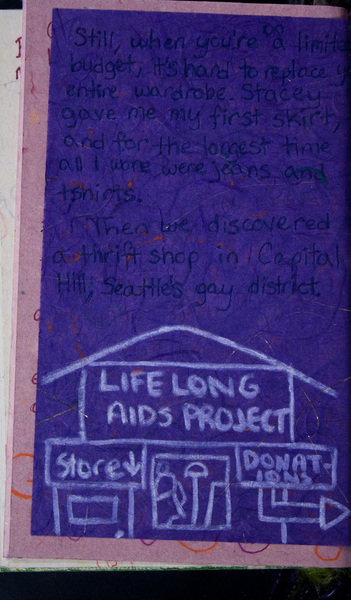 Still, when you're on a limited
budget, it's hard to replace
entire wardrobe. Stacey
gave me my first skirt,
and for the longest time
all I wore were jeans and
tshirts.
Then we discovered
a thrift shop in Capital
Hill, Seattle's gay district.
LIFELONG
AIDS PROJECT
Store
DONAT-
IONS